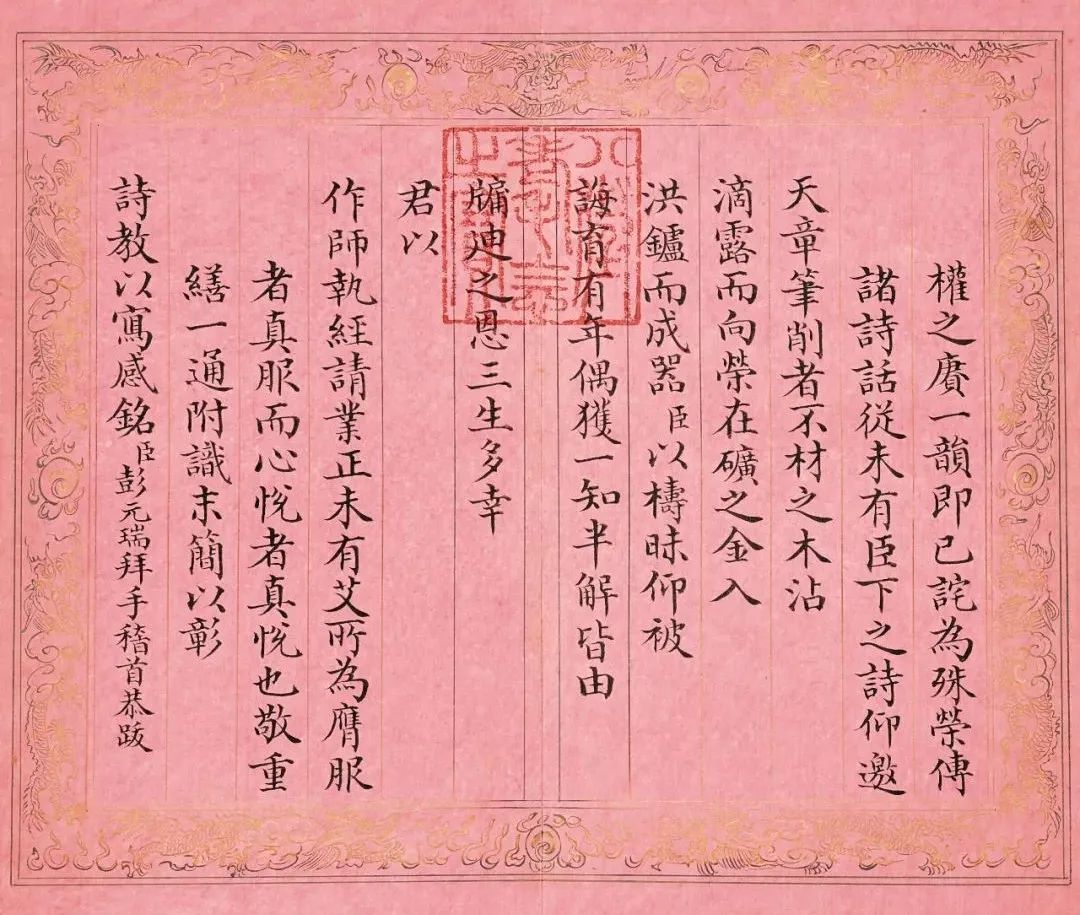 權之賡一韻即已詫為殊榮傳
諸詩話從未有臣下之詩仰邀
天章筆削者不材之木沾
滴露而向榮在礦之金入
洪鑪而成器臣以檮昧仰被
誨育有年偶獲一知半解皆由
牖迪之恩三生多幸
君以
作師執經請業正未有艾所為膺服
者真服而心悅者真悅也敬重
繕一通附識末簡以彰
詩教以寫感銘臣彭元瑞拜手稽首恭跋